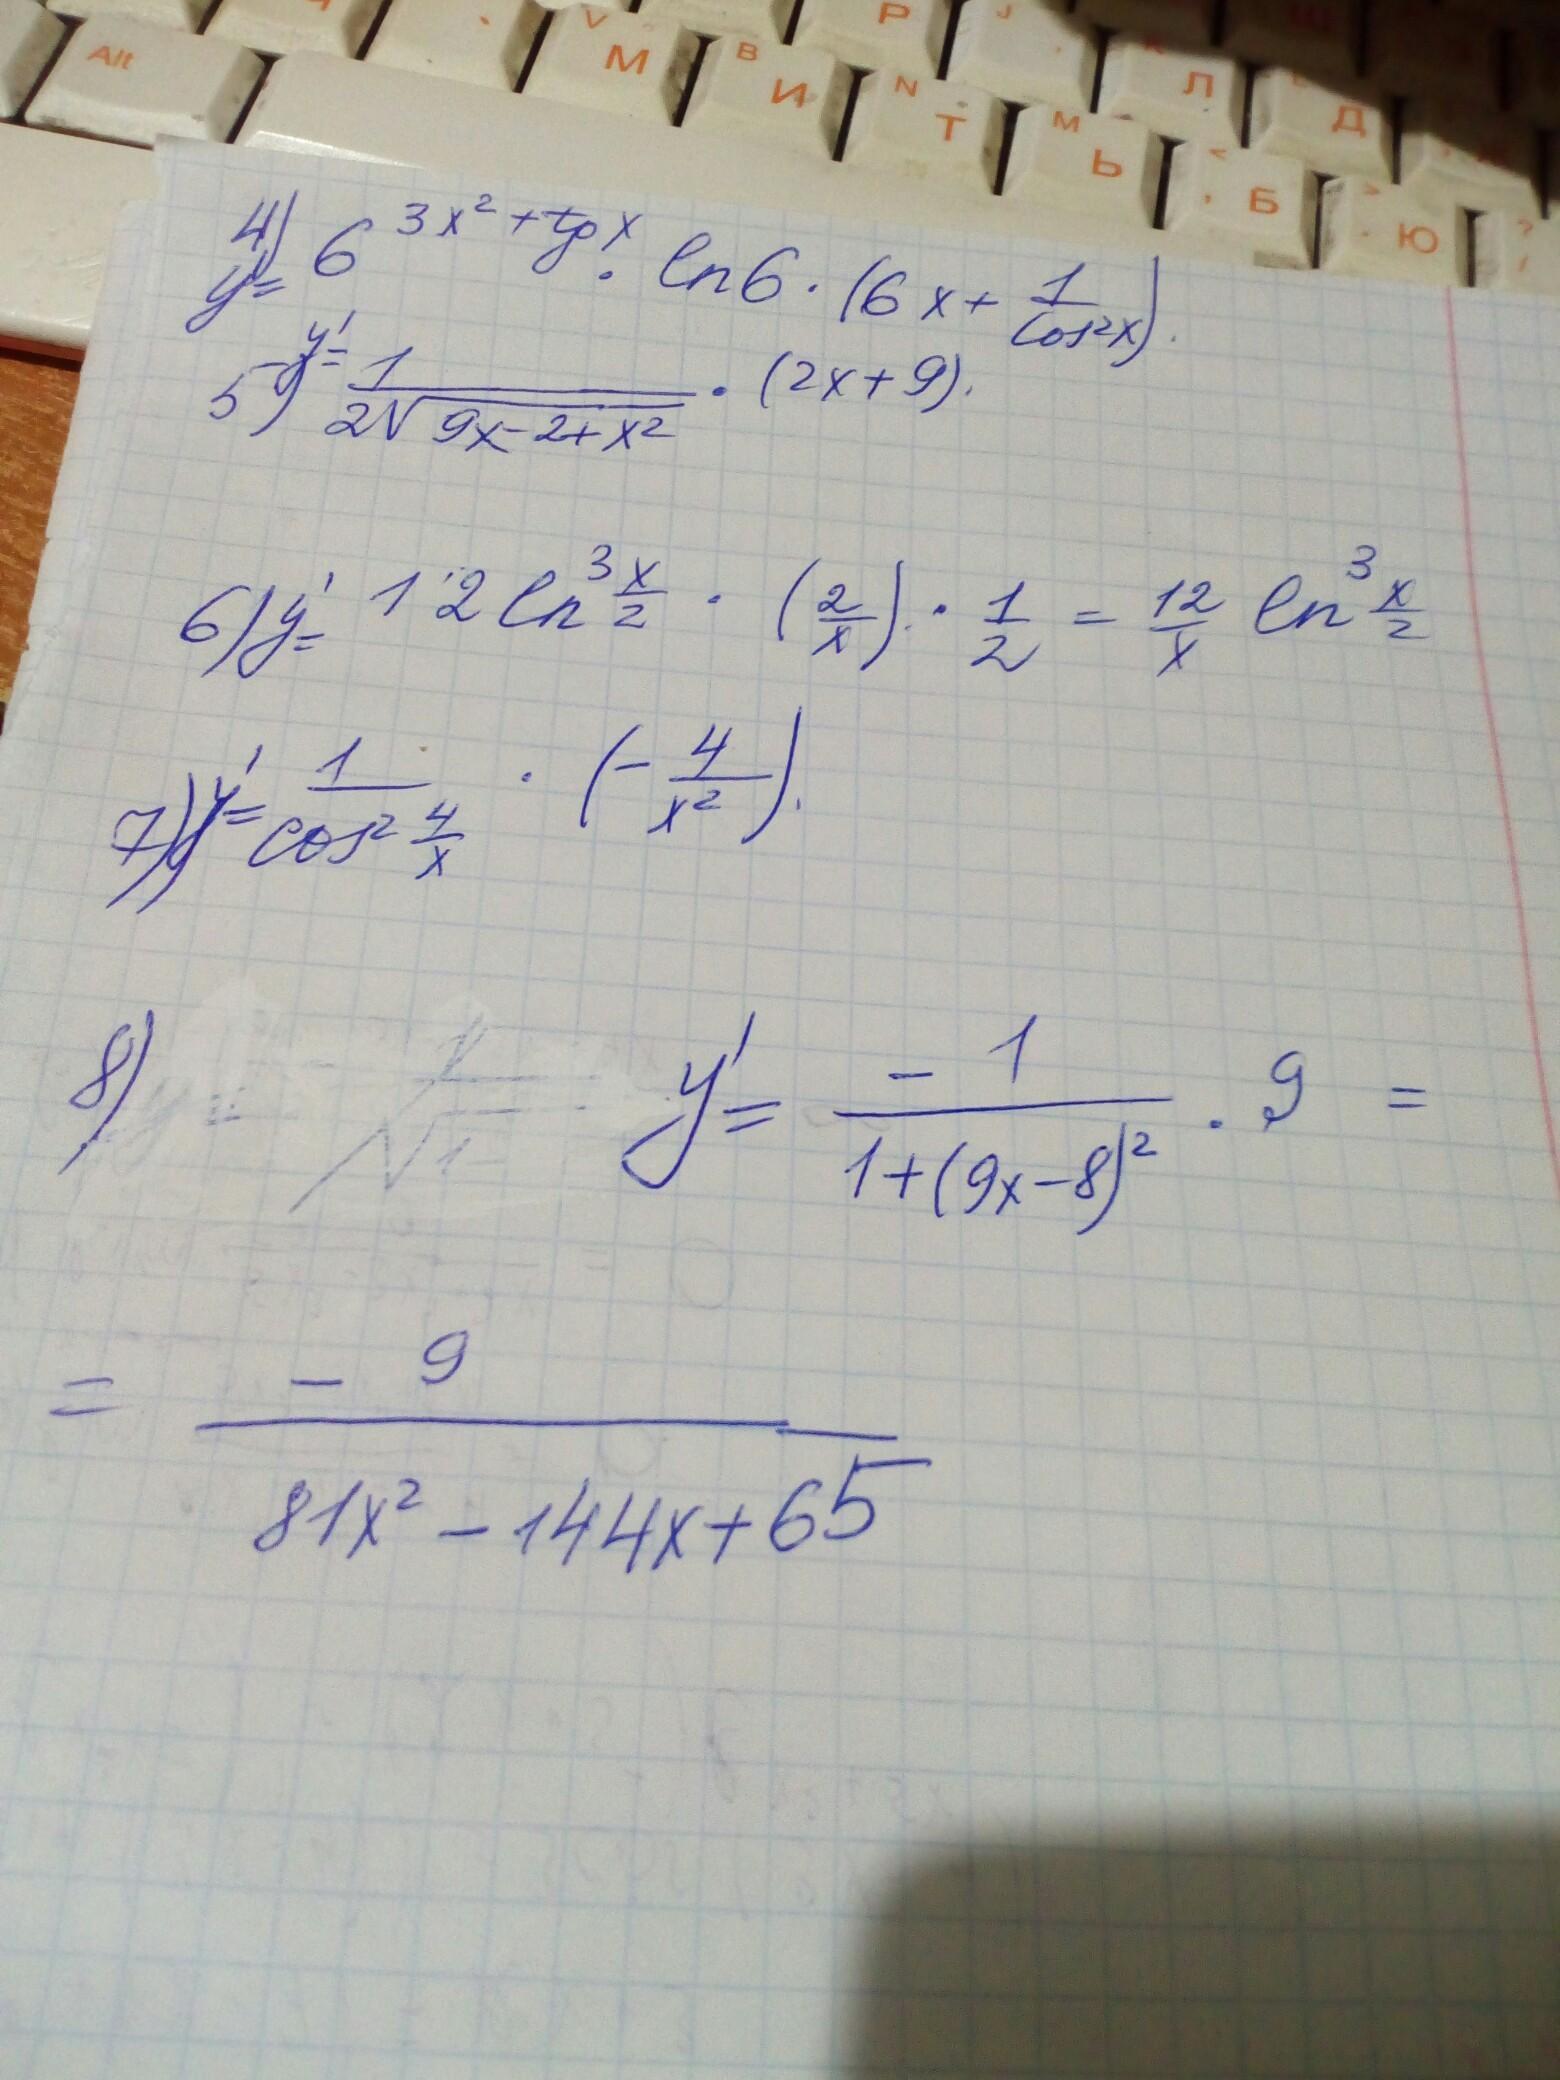 Alt V М B И N Т M Ь Р J Л Д < , Б > . Ю ? /
4) y' = 6^(3x² + tg x) · ln6 · (6x + 1/cos²x).
5) y' = 1/(2√(9x-2+x²)) · (2x+9).
6) y' = 12 ln³ x/2 · (2/x) · 1/2 = 12/x ln³ x/2
7) y' = 1/(cos² 4/x) · (- 4/x²).
8) y' = -1/(1+(9x-8)²) · 9 =
= -9/(81x² - 144x + 65)